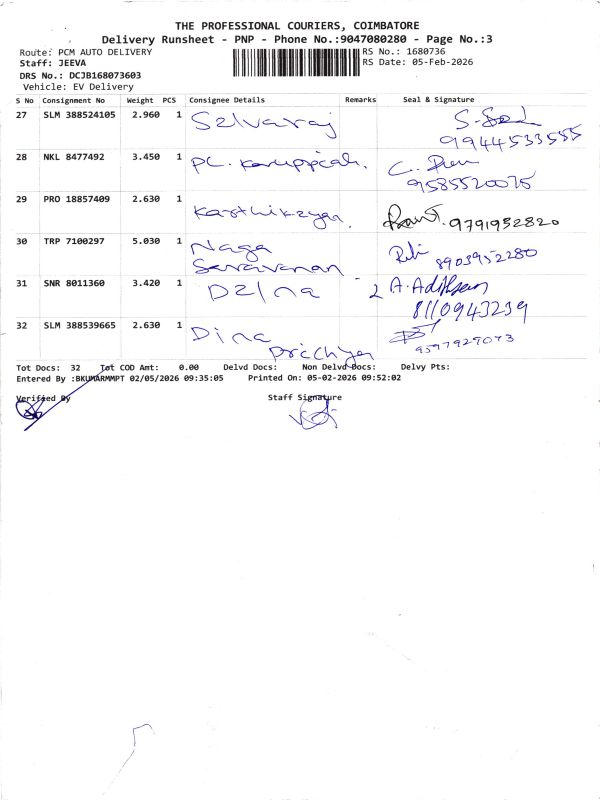 THE PROFESSIONAL COURIERS, COIMBATORE
Delivery Runsheet - PNP - Phone No.:9047080280 - Page No.:3
Route: PCM AUTO DELIVERY RS No.: 1680736
Staff: JEEVA RS Date: 05-Feb-2026
DRS No.: DCJB168073603
Vehicle: EV Delivery
S No Consignment No Weight PCS Consignee Details Remarks Seal & Signature
27 SLM 388524105 2.960 1 Selvaraj
9944533555
28 NKL 8477492 3.450 1 PL. Karuppiah.
9585520075
29 PRO 18857409 2.630 1 Karthikeyan. 9791952820
30 TRP 7100297 5.030 1 Naga
Saravanan 8903952280
31 SNR 8011360 3.420 1
8110943239
32 SLM 388539665 2.630 1 Dina
9597927073
Tot Docs: 32 Tot COD Amt: 0.00 Delvd Docs: Non Delvd Docs: Delvy Pts:
Entered By :BKUMARMMPT 02/05/2026 09:35:05 Printed On: 05-02-2026 09:52:02
Verified By Staff Signature